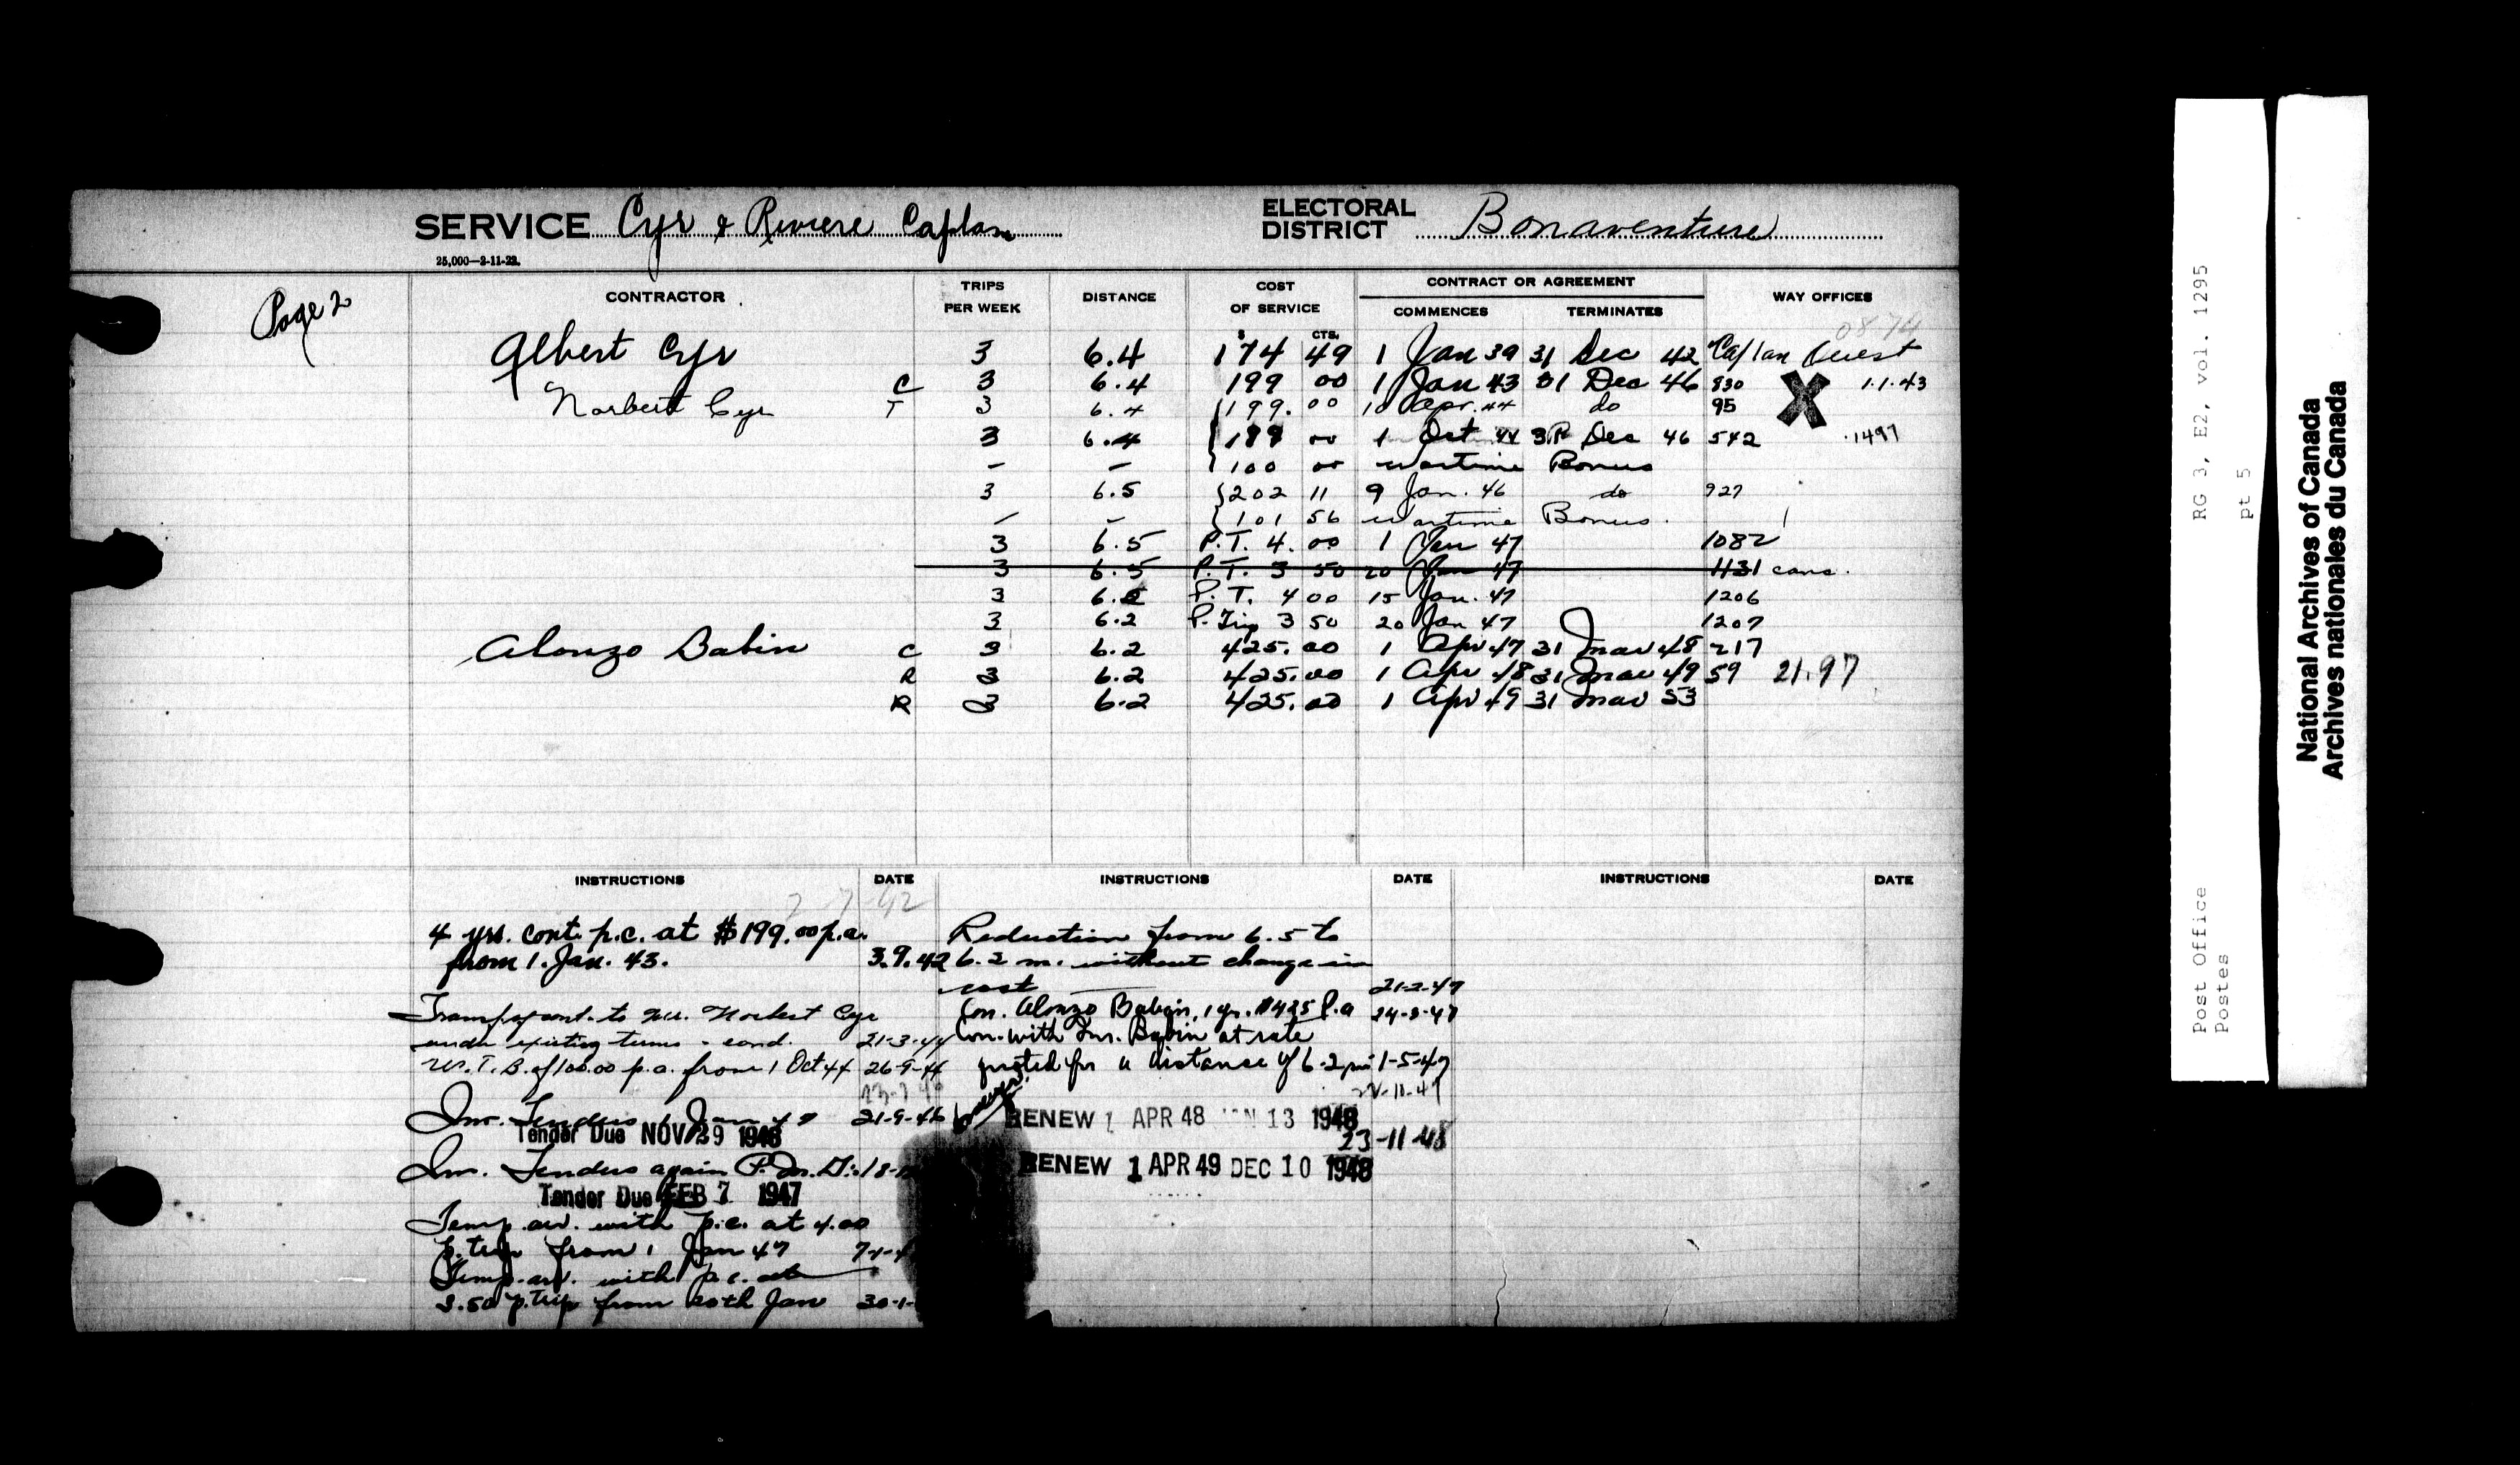 SERVICE Cyr & Riviere Caplan ELECTORAL DISTRICT Bonaventure
25,000—2-11-22.
Page 2
CONTRACTOR TRIPS PER WEEK DISTANCE COST OF SERVICE CONTRACT OR AGREEMENT WAY OFFICES
COMMENCES TERMINATES
$ CTS. 0874
Albert Cyr 3 6.4 174 49 1 Jan 39 31 Dec 42 Caplan Ouest
C 3 6.4 199 00 1 Jan 43 31 Dec 46 830 X 1.1.43
Norbert Cyr T 3 6.4 199.00 10 Apr. 44 do 95
3 6.4 199 00 1 Oct 44 31 Dec 46 542 1497
— — 100 00 Wartime Bonus
3 6.5 202 11 9 Jan. 46 do 927
— — 101 56 Wartime Bonus.
3 6.5 P.T. 4.00 1 Jan 47 1082
3 6.5 P.T. 3 50 20 Jan 47 1131 canc.
3 6.2 P.T. 4 00 15 Jan. 47 1206
3 6.2 P. Trip 3 50 20 Jan 47 1207
Alonzo Babin C 3 6.2 425.00 1 Apr 47 31 Mar 48 217
R 3 6.2 425.00 1 Apr 48 31 Mar 49 59 21.97
R 3 6.2 425.00 1 Apr 49 31 Mar 53
INSTRUCTIONS DATE INSTRUCTIONS DATE INSTRUCTIONS DATE
2-7-42
4 yrs. cont. p.c. at $199.00 p.a.
from 1. Jan. 43. 3.9.42
Transf cont. to Mr. Norbert Cyr
under existing terms & cond. 21-3-44
W.T.B. of 100.00 p.a. from 1 Oct 44 26-9-44
Inv. Tenders 1 Jan 47 21-9-46
Tender Due NOV 29 1946
Inv. Tenders again P.M.G.
Tender Due FEB 7 1947
Temp. arr. with p.c. at 4.00
p. trip from 1 Jan 47
Temp. arr. with p.c. at
3.50 p. trip from 20th Jan
Reduction from 6.5 to
6.2 m. without change in
cost 21-2-47
Con. Alonzo Babin, 1 yr. $425 P.a
Con. with Mr. Babin at rate
quoted for a distance of 6.2 mi 1-5-47
RENEW 1 APR 48 JAN 13 1948
23-11-48
RENEW 1 APR 49 DEC 10 1948
RG 3, E2, vol. 1295
pt 5
Post Office
Postes
National Archives of Canada
Archives nationales du Canada